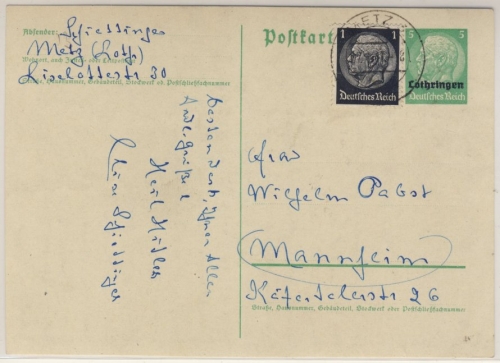 Absender:
Schiettinger
Metz (Loth)
Wohnort, auch Zustell- oder Leitpostamt
Liselottestr 30
Straße, Hausnummer, Gebäudeteil, Stockwerk od. Postschließfachnummer
Postkarte
1 1
Deutsches Reich
METZ
5 5
Lothringen
Deutsches Reich
besten Dank, Ihnen Allen
Grüße
Heil Hitler
Schiettinger
Frau
Wilhelm Pabst
Mannheim
Käfertalerstr 26
Straße, Hausnummer, Gebäudeteil, Stockwerk oder Postschließfachnummer